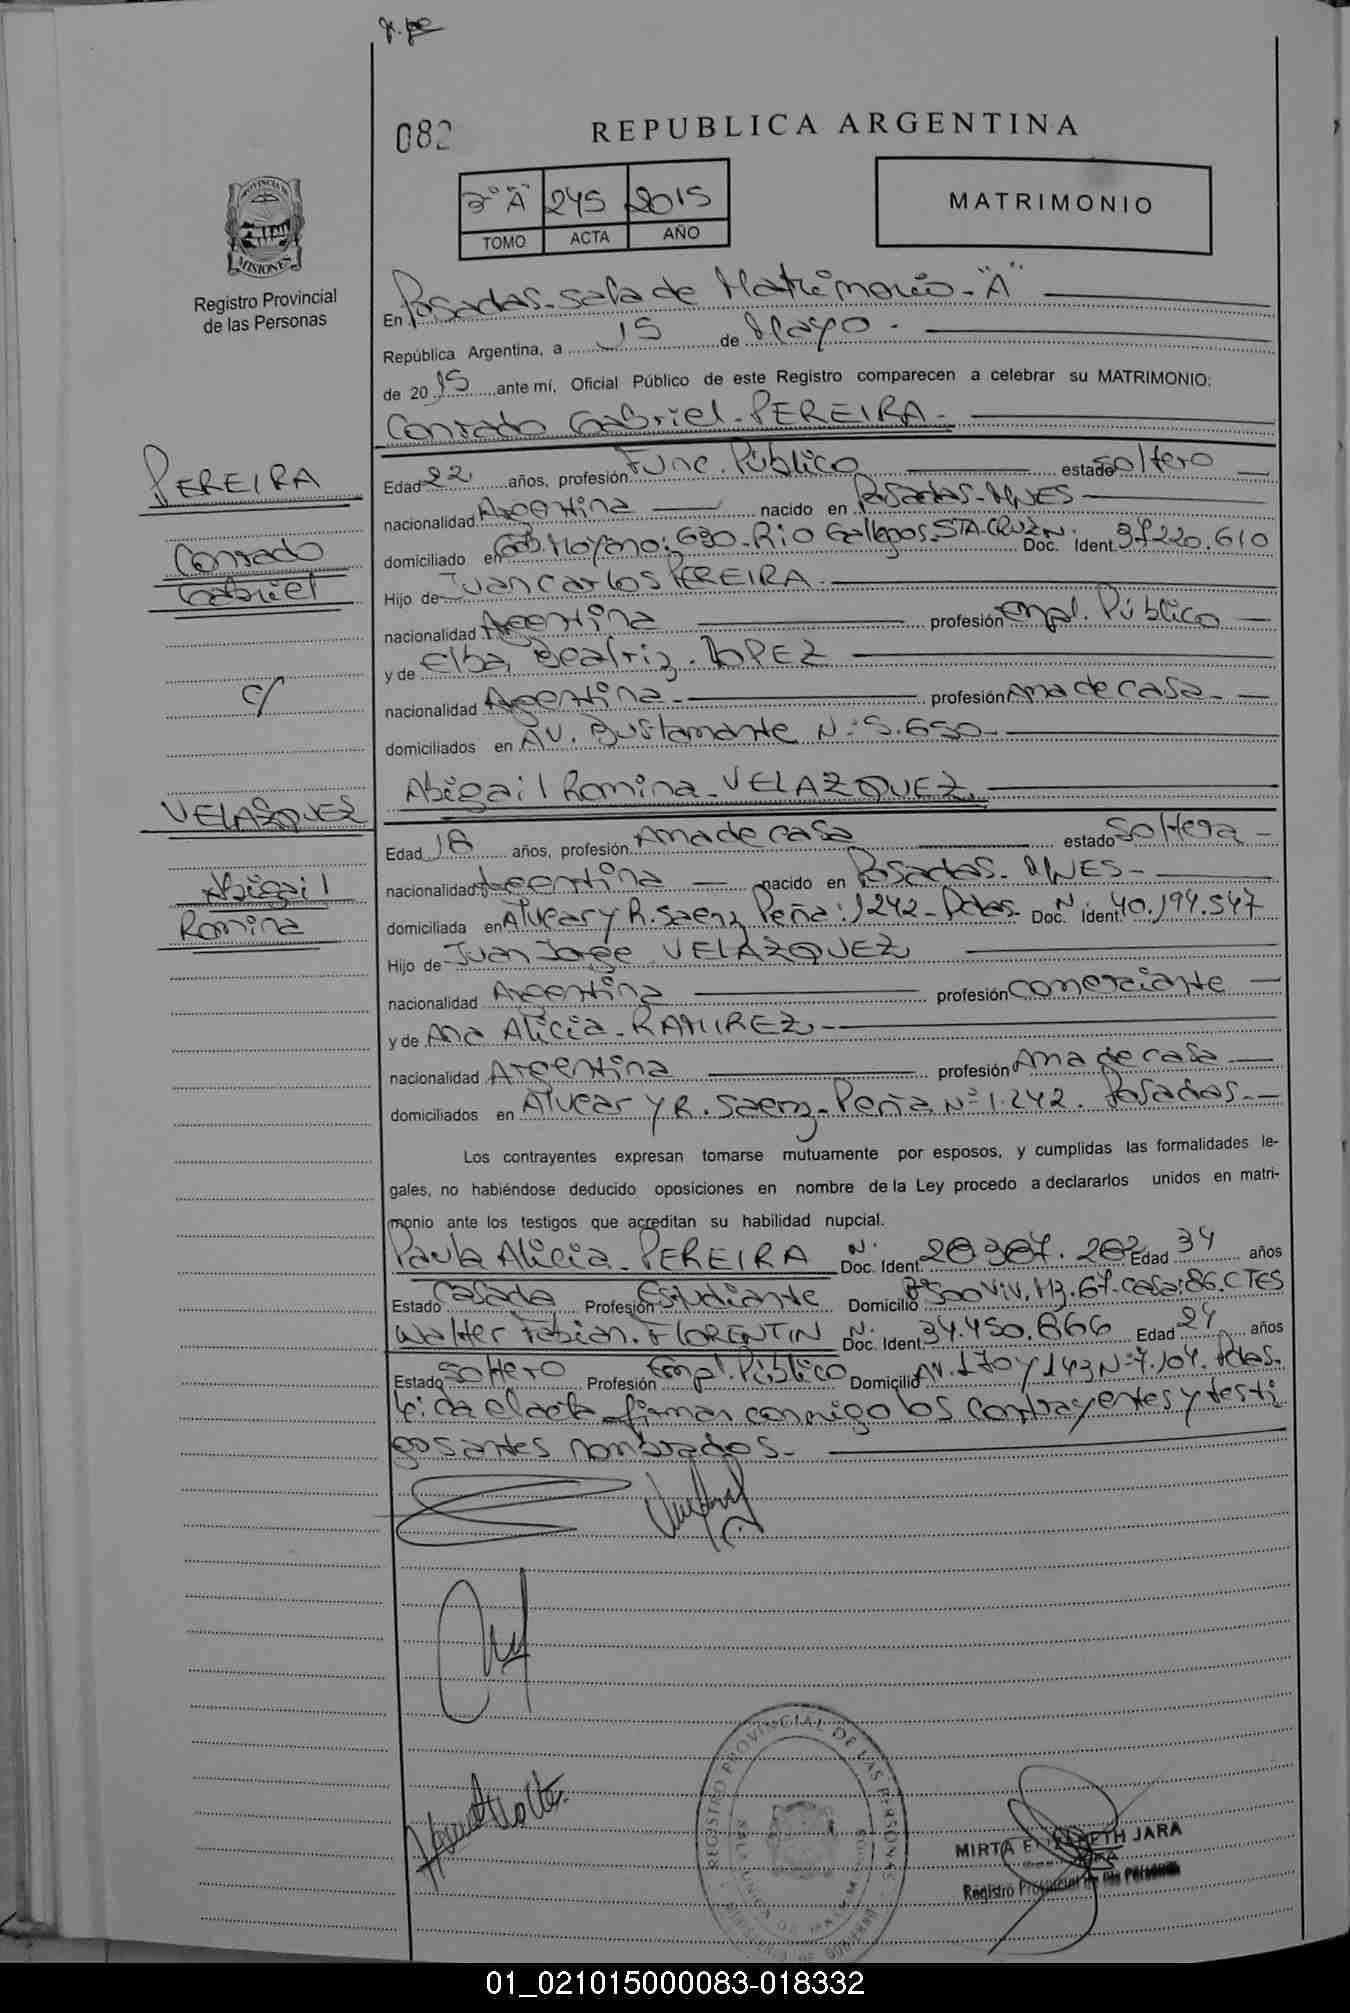 082
REPUBLICA ARGENTINA
2º "A" 245 2015
TOMO ACTA AÑO
MATRIMONIO
PROVINCIA DE
MISIONES
Registro Provincial
de las Personas
En Posadas-sala de Matrimonio-"A"
República Argentina, a 15 de Mayo.
de 2015 ante mí, Oficial Público de este Registro comparecen a celebrar su MATRIMONIO:
Conrado Gabriel-PEREIRA-
PEREIRA
Conrado
Gabriel
c/
VELAZQUEZ
Abigail
Romina
Edad 22 años, profesión Func. Público estado soltero
nacionalidad Argentina nacido en Posadas-MNES-
domiciliado en Gob. Moyano: 630-Rio Gallegos-STA.CRUZ Doc. Ident. Nº 37.220.610
Hijo de Juan Carlos PEREIRA
nacionalidad Argentina profesión Empl. Público
y de Elba Beatriz-LOPEZ
nacionalidad Argentina- profesión Ama de casa-
domiciliados en AV. Bustamante Nº 5.650-
Abigail Romina-VELAZQUEZ
Edad 18 años, profesión Ama de casa estado soltera-
nacionalidad Argentina nacido en Posadas-MNES-
domiciliada en Alvear y R. Saenz Peña: 1242-Pdas. Doc. Ident. Nº 40.194.547
Hijo de Juan Jorge VELAZQUEZ
nacionalidad Argentina profesión comerciante
y de Ana Alicia-RAMIREZ-
nacionalidad Argentina profesión Ama de casa
domiciliados en Alvear y R. Saenz-Peña Nº 1.242. Posadas-
Los contrayentes expresan tomarse mutuamente por esposos, y cumplidas las formalidades le-
gales, no habiéndose deducido oposiciones en nombre de la Ley procedo a declararlos unidos en matri-
monio ante los testigos que acreditan su habilidad nupcial.
Paula Alicia-PEREIRA Nº Doc. Ident. Edad 34 años
Estado Casada Profesión Estudiante Domicilio Bº 500 Viv. Mz. 67-casa: 86. CTES
Walter Fabian-FLORENTIN Nº Doc. Ident. 34.450.866 Edad 24 años
Estado soltero Profesión Empl. Público Domicilio AV. 170 y 143 Nº 7.104. Pdas.
Leida el acta firman conmigo los contrayentes y testi
gos antes nombrados-
REGISTRO PROVINCIAL DE LAS PERSONAS
MIRTA ELIZABETH JARA
Registro Provincial de las Personas
01_021015000083-018332